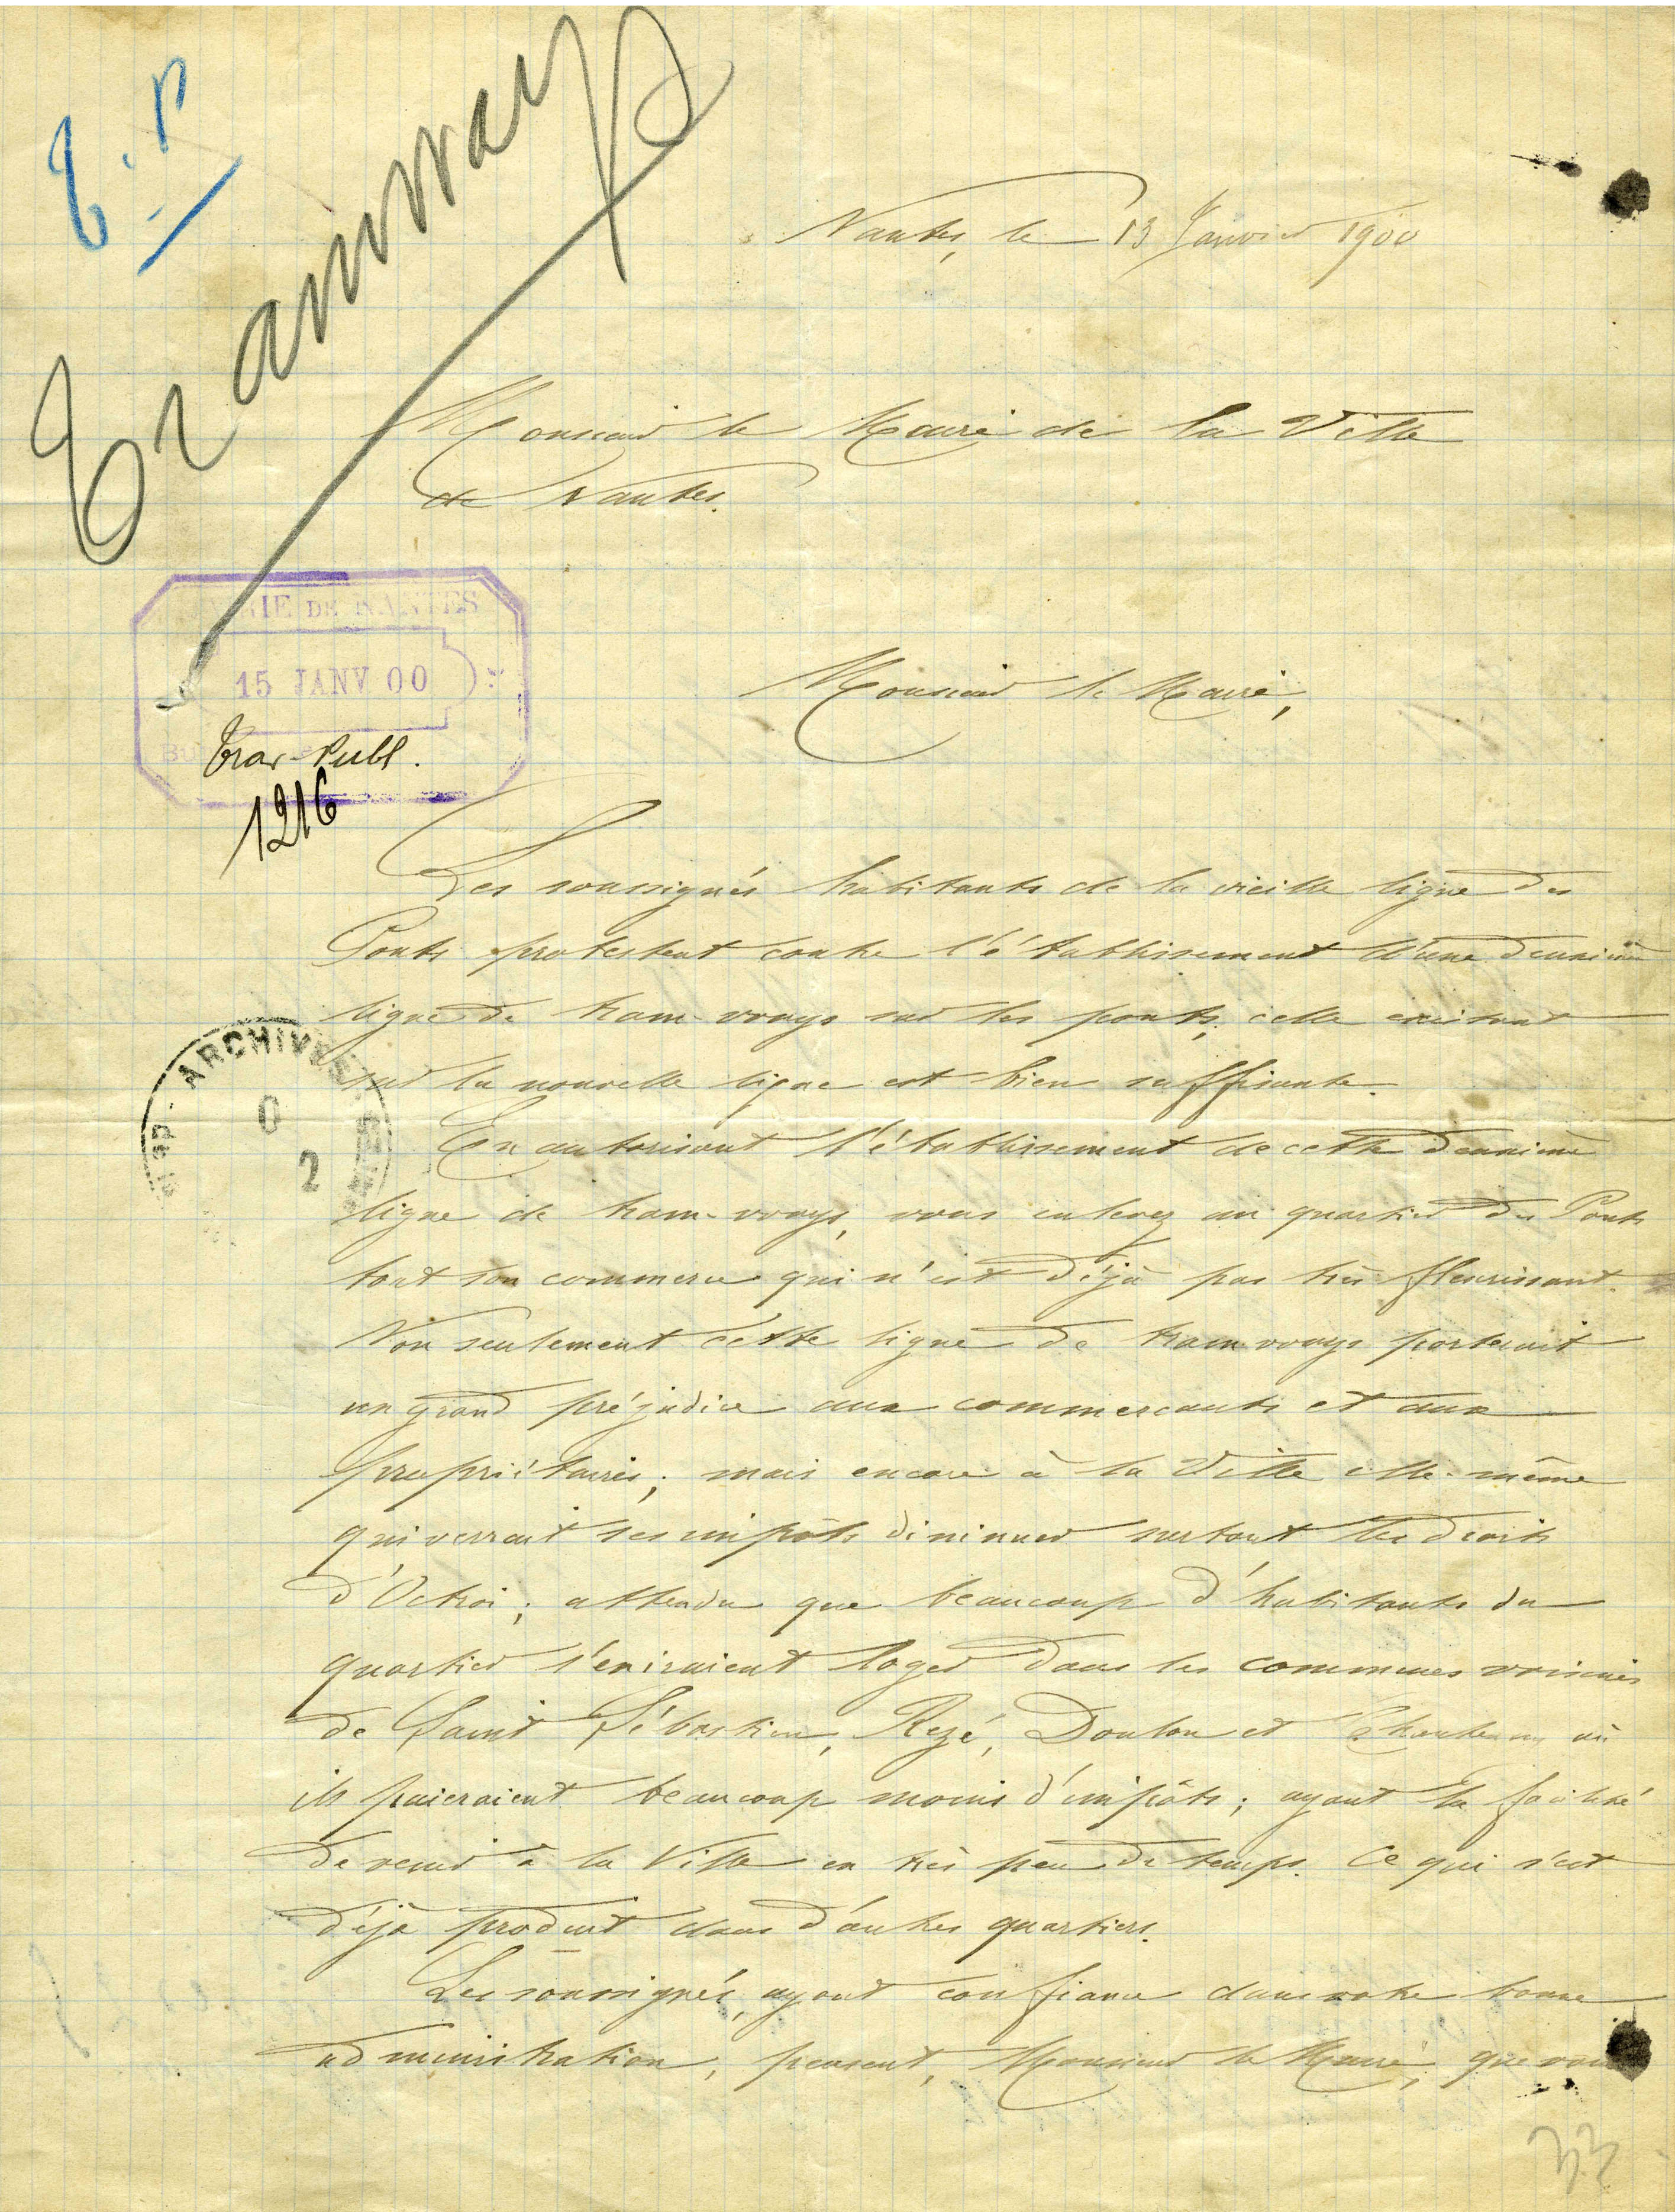 T.P
Tramway
Nantes, le 13 Janvier 1900
Monsieur le Maire de la Ville
de Nantes.
RIE DE NANTES
15 JANV 00
Trav-Publ.
1216
Monsieur le Maire,
Les soussignés habitants de la vieille ligne des
Ponts protestent contre l'établissement d'une deuxième
ligne de tram-ways sur les ponts, celle existant
sur la nouvelle ligne est bien suffisante.
ARCHIVES
0
2
En autorisant l'établissement de cette deuxième
ligne de tram-ways, vous enlevez au quartier des Ponts
tout son commerce qui n'est déjà pas très fleurissant.
Non seulement cette ligne de tram-ways porterait
un grand préjudice aux commercants et aux
propriétaires; mais encore à la Ville elle-même
qui verrait ses impôts diminuer surtout les droits
d'Octroi; attendu que beaucoup d'habitants du
quartier s'eniraient loger dans les communes voisines
de Saint Sébastien, Rezé, Doulon et Chantenay où
ils paieraient beaucoup moins d'impôts; ayant la facilité
de venir à la Ville en très peu de temps. Ce qui s'est
déjà produit dans d'autres quartiers.
Les soussignés, ayant confiance dans votre bonne
administration, pensent, Monsieur le Maire, que vous
33